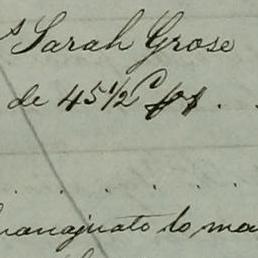 s Sarah Grose
de 45 1/2 C
Guanajuato lo ma